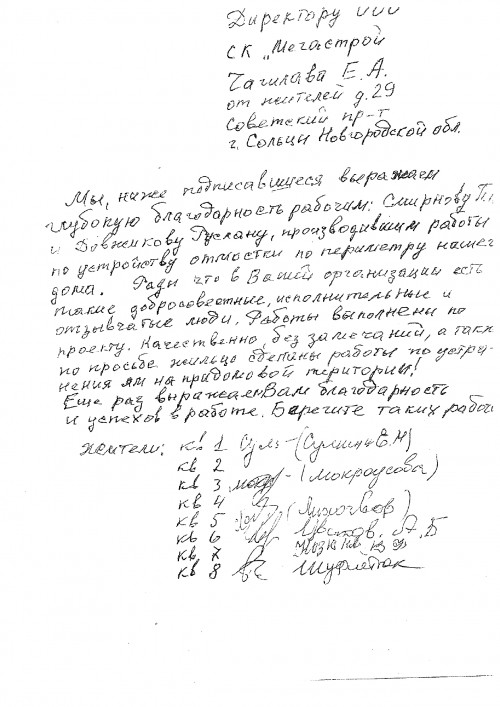 Директору ООО
СК "Мегастрой
Чагилава Е.А.
от жителей д.29
Советский пр-т
г. Сольцы Новгородской обл.
Мы, ниже подписавшиеся выражаем
глубокую благодарность рабочим: Смирнову
и Довжикову Руслану, производившим работы
по устройству отмостки по периметру нашег
дома. Рады что в Вашей организации есть
такие добросовестные, исполнительные и
отзывчатые люди. Работы выполнены по
проекту. Качественно, без замечаний, а такж
по просьбе жильцо сделаны работы по устра-
нения ям на придомовой територии!
Еще раз выражаем Вам благодарность
и успехов в работе. Берегите таких рабоч
жители: кв 1
кв 2
кв 3 (Мокроусова)
кв 4
кв 5
кв 6 А.Б
кв. 7
кв 8